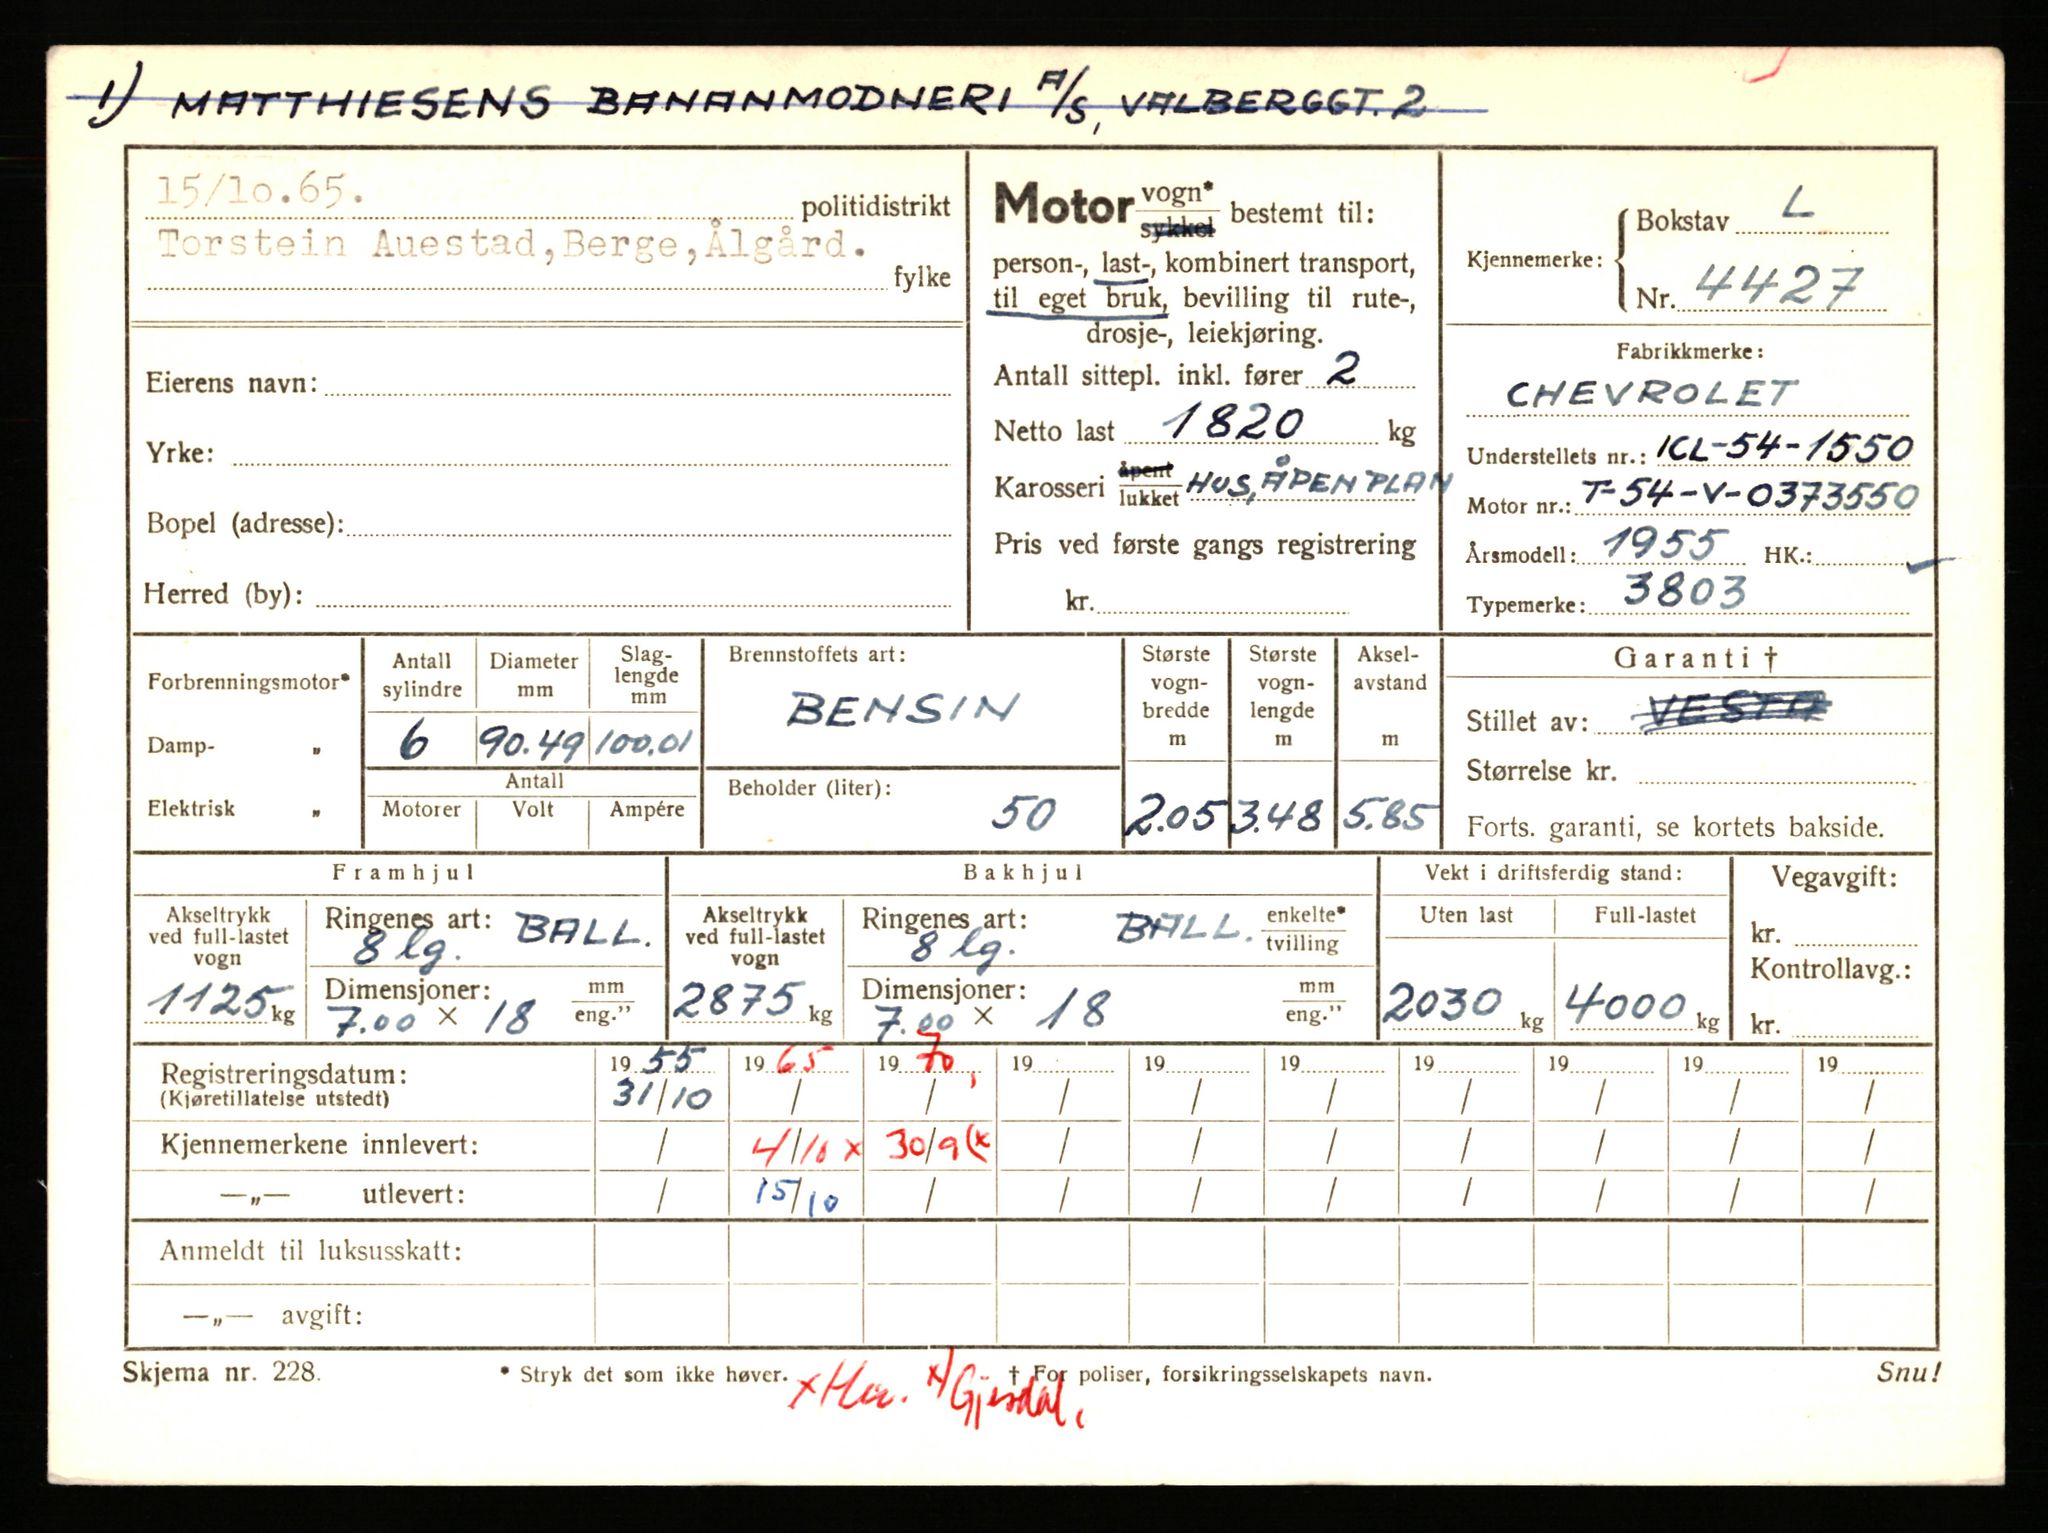 1) MATTHIESENS BANANMODNERI A/S, VALBERGGT. 2
15/10.65. politidistrikt
Torstein Auestad, Berge, Ålgård.
fylke
Eierens navn:
Yrke:
Bopel (adresse):
Herred (by):
Motor vogn* sykkel bestemt til:
person-, last-, kombinert transport,
til eget bruk, bevilling til rute-,
drosje-, leiekjøring.
Antall sittepl. inkl. fører 2
Netto last 1820 kg
Karosseri åpent lukket HUS, ÅPEN PLAN
Pris ved første gangs registrering
kr.
Kjennemerke: Bokstav L
Nr. 4427
Fabrikkmerke:
CHEVROLET
Understellets nr.: ICL-54-1550
Motor nr.: T-54-V-0373550
Årsmodell: 1955 HK.:
Typemerke: 3803
Forbrenningsmotor*
Damp- „
Elektrisk „
Antall sylindre
Diameter mm
Slag-lengde mm
6 90.49 100.01
Antall
Motorer Volt Ampére
Brennstoffets art:
BENSIN
Beholder (liter):
50
Største vogn-bredde m
Største vogn-lengde m
Aksel-avstand m
2.05 3.48 5.85
Garanti †
Stillet av: VESTA
Størrelse kr.
Forts. garanti, se kortets bakside.
Framhjul
Akseltrykk ved full-lastet vogn
1125 kg
Ringenes art: BALL.
8 lg.
Dimensjoner: mm
7.00 × 18 eng."
Bakhjul
Akseltrykk ved full-lastet vogn
2875 kg
Ringenes art: BALL. enkelte* tvilling
8 lg.
Dimensjoner: mm
7.00 × 18 eng."
Vekt i driftsferdig stand:
Uten last Full-lastet
2030 kg 4000 kg
Vegavgift:
kr.
Kontrollavg.:
kr.
Registreringsdatum: 19 55 19 65 19 70, 19 19 19 19 19 19 19
(Kjøretillatelse utstedt) 31/10 / / / / / / / / /
Kjennemerkene innlevert: / 4/10 x 30/9 (x / / / / / / /
—„— utlevert: / 15/10 / / / / / / / /
Anmeldt til luksusskatt:
—„— avgift:
Skjema nr. 228. * Stryk det som ikke høver. † For poliser, forsikringsselskapets navn. Snu!
x) Gjesdal.